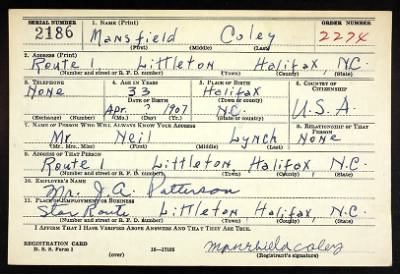 SERIAL NUMBER 1. NAME (Print) ORDER NUMBER
2186 Mansfield Coley 2274
(First) (Middle) (Last)
2. ADDRESS (Print)
Route 1, Littleton Halifax, N.C.
(Number and street or R. F. D. number) (Town) (County) (State)
3. TELEPHONE 4. AGE IN YEARS 5. PLACE OF BIRTH 6. COUNTRY OF CITIZENSHIP
None 33 Halifax
DATE OF BIRTH (Town or county)
Apr. 1907 N.C. U.S.A.
(Exchange) (Number) (Mo.) (Day) (Yr.) (State or country)
7. NAME OF PERSON WHO WILL ALWAYS KNOW YOUR ADDRESS 8. RELATIONSHIP OF THAT PERSON
Mr. Neil Lynch None
(Mr., Mrs., Miss) (First) (Middle) (Last)
9. ADDRESS OF THAT PERSON
Route 1 Littleton Halifax N.C.
(Number and street or R. F. D. number) (Town) (County) (State)
10. EMPLOYER'S NAME
Mr. J.A. Patterson
11. PLACE OF EMPLOYMENT OR BUSINESS
Star Route Littleton Halifax, N.C.
(Number and street or R. F. D. number) (Town) (County) (State)
I AFFIRM THAT I HAVE VERIFIED ABOVE ANSWERS AND THAT THEY ARE TRUE.
REGISTRATION CARD
D. S. S. Form 1 (over) (Registrant's signature)